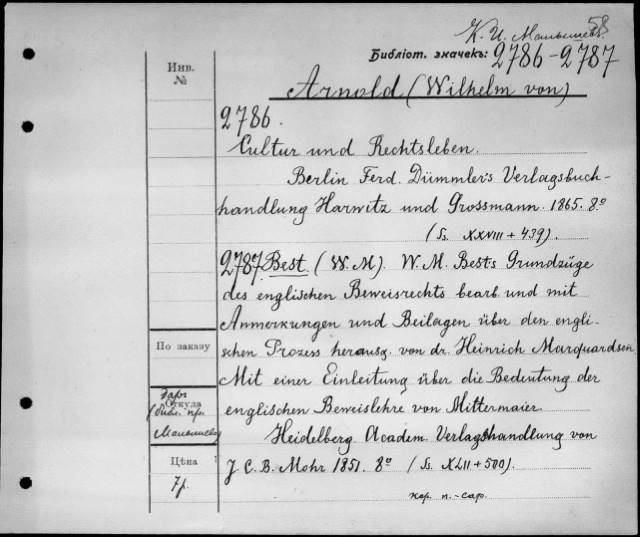 58
К. И. Малышевъ.
Библіот. значекъ: 2786-2787
Инв.
№
Arnold (Wilhelm von)
2786.
Cultur und Rechtsleben.
Berlin Ferd. Dümmler's Verlagsbuch-
handlung Harwitz und Grossmann. 1865. 8°
(Ss. XXVIII + 439).
2787 Best (W. M). W. M. Bests Grundzüge
des englischen Beweisrechts bearb. und mit
Anmerkungen und Beilagen über den engli-
schen Prozess herausg. von dr. Heinrich Marquardsen
Mit einer Einleitung über die Bedeutung der
englischen Beweislehre von Mittermaier
Heidelberg. Academ. Verlagshandlung von
J. C. B. Mohr 1851. 8° (Ss. XLII + 500).
кор. п.-сар.
По заказу
Даръ
Откуда
(библ. пр.
Малышева)
Цѣна
7р.